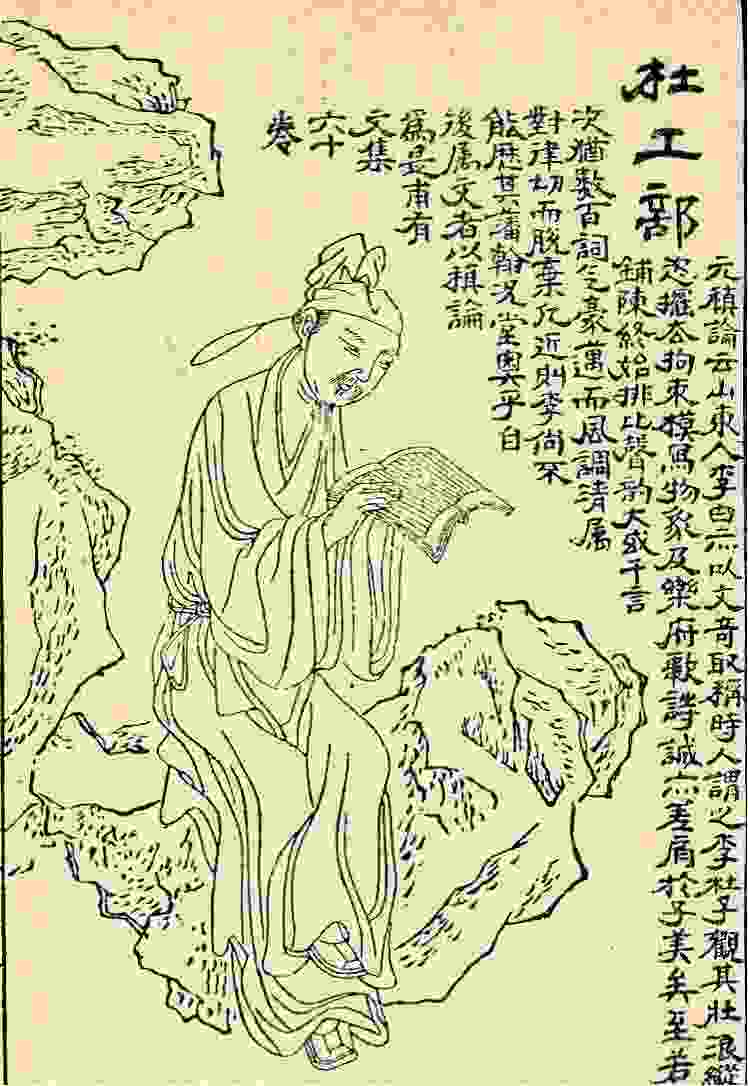 杜工部
元稹論云山東人李白亦以文奇取稱時人謂之李杜予觀其壯浪縱
恣擺去拘束模寫物象及樂府歌詩誠亦差肩於子美矣至若
鋪陳終始排比聲韵大或千言
次猶數百詞气豪邁而風調清属
對律切而脫棄凡近則李尚不
能歷其藩翰况堂奧乎自
後属文者以稹論
爲是甫有
文集
六十
卷